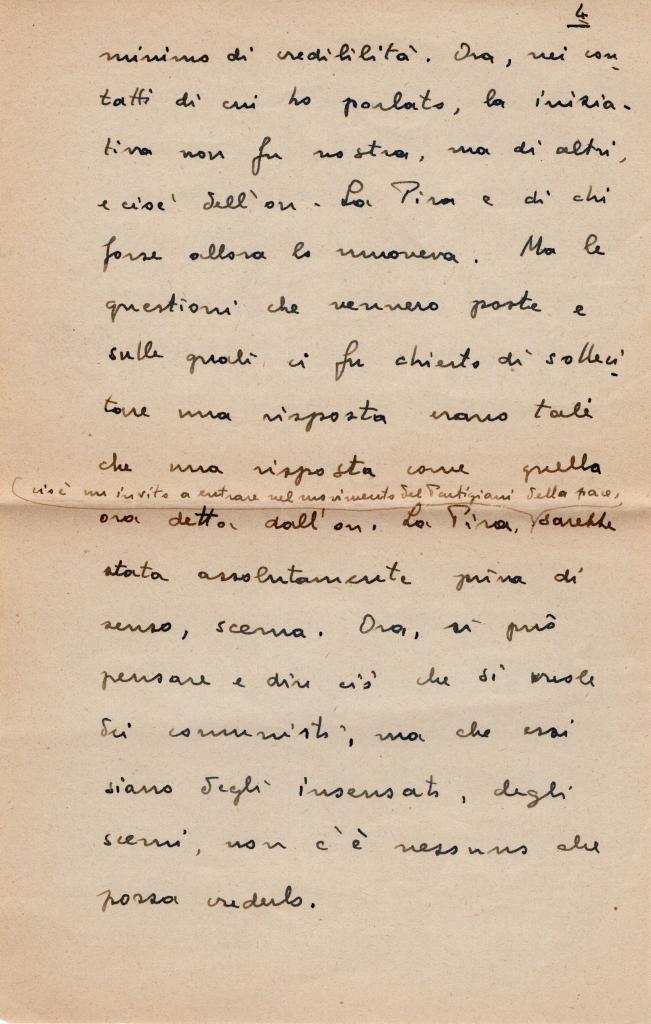 4
minimo di credibilità. Ora, nei con-
tatti di cui ho parlato, la inizia-
tiva non fu nostra, ma di altri,
e cioè dell'on. La Pira e di chi
forse allora lo muoveva. Ma le
questioni che vennero poste e
sulle quali ci fu chiesto di solleci-
tare una risposta erano tali
che una risposta come quella
(cioè un invito a entrare nel movimento dei Partigiani della pace,
ora detta dall'on. La Pira, sarebbe
stata assolutamente priva di
senso, scema. Ora, si può
pensare e dire ciò che si vuole
dei comunisti, ma che essi
siano degli insensati, degli
scemi, non c'è nessuno che
possa crederlo.